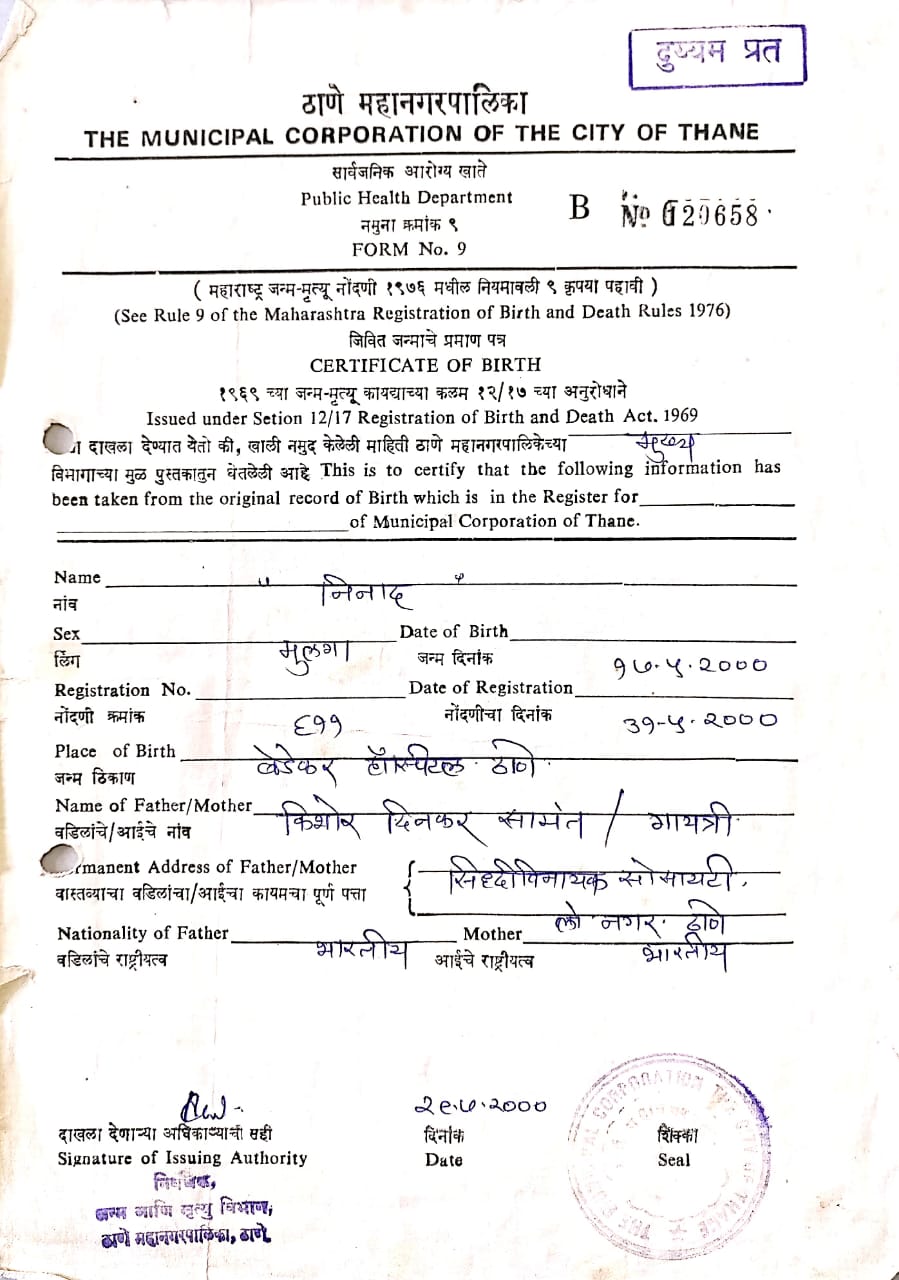 दुय्यम प्रत
ठाणे महानगरपालिका
THE MUNICIPAL CORPORATION OF THE CITY OF THANE
सार्वजनिक आरोग्य खाते
Public Health Department
नमुना क्रमांक ९
FORM No. 9
B No 020658
( महाराष्ट्र जन्म-मृत्यू नोंदणी १९७६ मधील नियमावली ९ कृपया पहावी )
(See Rule 9 of the Maharashtra Registration of Birth and Death Rules 1976)
जिवित जन्माचे प्रमाण पत्र
CERTIFICATE OF BIRTH
१९६९ च्या जन्म-मृत्यू कायद्याच्या कलम १२/१७ च्या अनुरोधाने
Issued under Setion 12/17 Registration of Birth and Death Act. 1969
दाखला देण्यात येतो की, खाली नमुद केलेली माहिती ठाणे महानगरपालिकेच्या मुख्य
विभागाच्या मुळ पुस्तकातुन घेतलेली आहे This is to certify that the following information has
been taken from the original record of Birth which is in the Register for
of Municipal Corporation of Thane.
Name
नांव
" निनाद "
Sex
लिंग
मुलगा
Date of Birth
जन्म दिनांक
१७.५.2000
Registration No.
नोंदणी क्रमांक
६११
Date of Registration
नोंदणीचा दिनांक
३१-५.2000
Place of Birth
जन्म ठिकाण
बेडेकर हॉस्पिटल. ठाणे.
Name of Father/Mother
वडिलांचे/आईचे नांव
किशोर दिनकर सामंत / गायत्री
rmanent Address of Father/Mother
वास्तव्याचा वडिलांचा/आईचा कायमचा पूर्ण पत्ता
सिध्दीविनायक सोसायटी.
लो नगर. ठाणे
Nationality of Father
वडिलांचे राष्ट्रीयत्व
भारतीय
Mother
आईचे राष्ट्रीयत्व
भारतीय
दाखला देणाऱ्या अधिकाऱ्याची सही
Signature of Issuing Authority
निबंधक,
जन्म आणि मृत्यु विभाग,
ठाणे महानगरपालिका, ठाणे.
२९.७.2000
दिनांक
Date
शिक्का
Seal